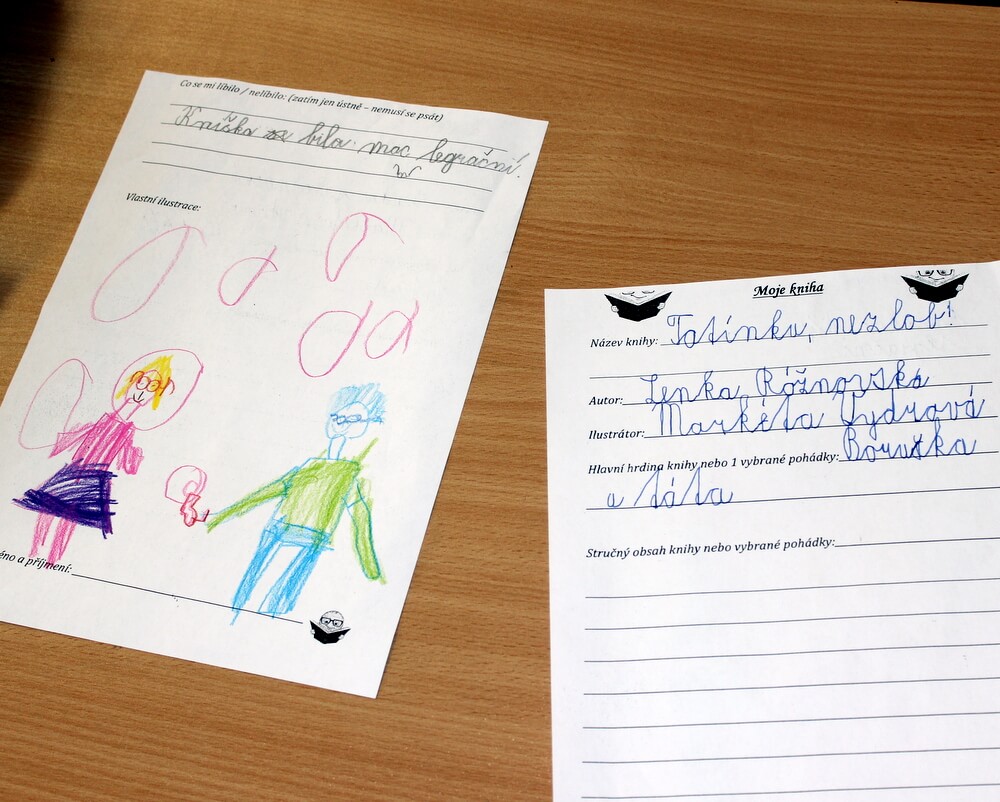 Co se mi líbilo / nelíbilo: (zatím jen ústně – nemusí se psát)
Kniška bila moc legrační.
Vlastní ilustrace:
éno a příjmení:
Moje kniha
Název knihy: Tatínku, nezlob!
Autor: Lenka Rožnovská
Ilustrátor: Markéta Vydrová
Hlavní hrdina knihy nebo 1 vybrané pohádky: Boruška
a táta
Stručný obsah knihy nebo vybrané pohádky: